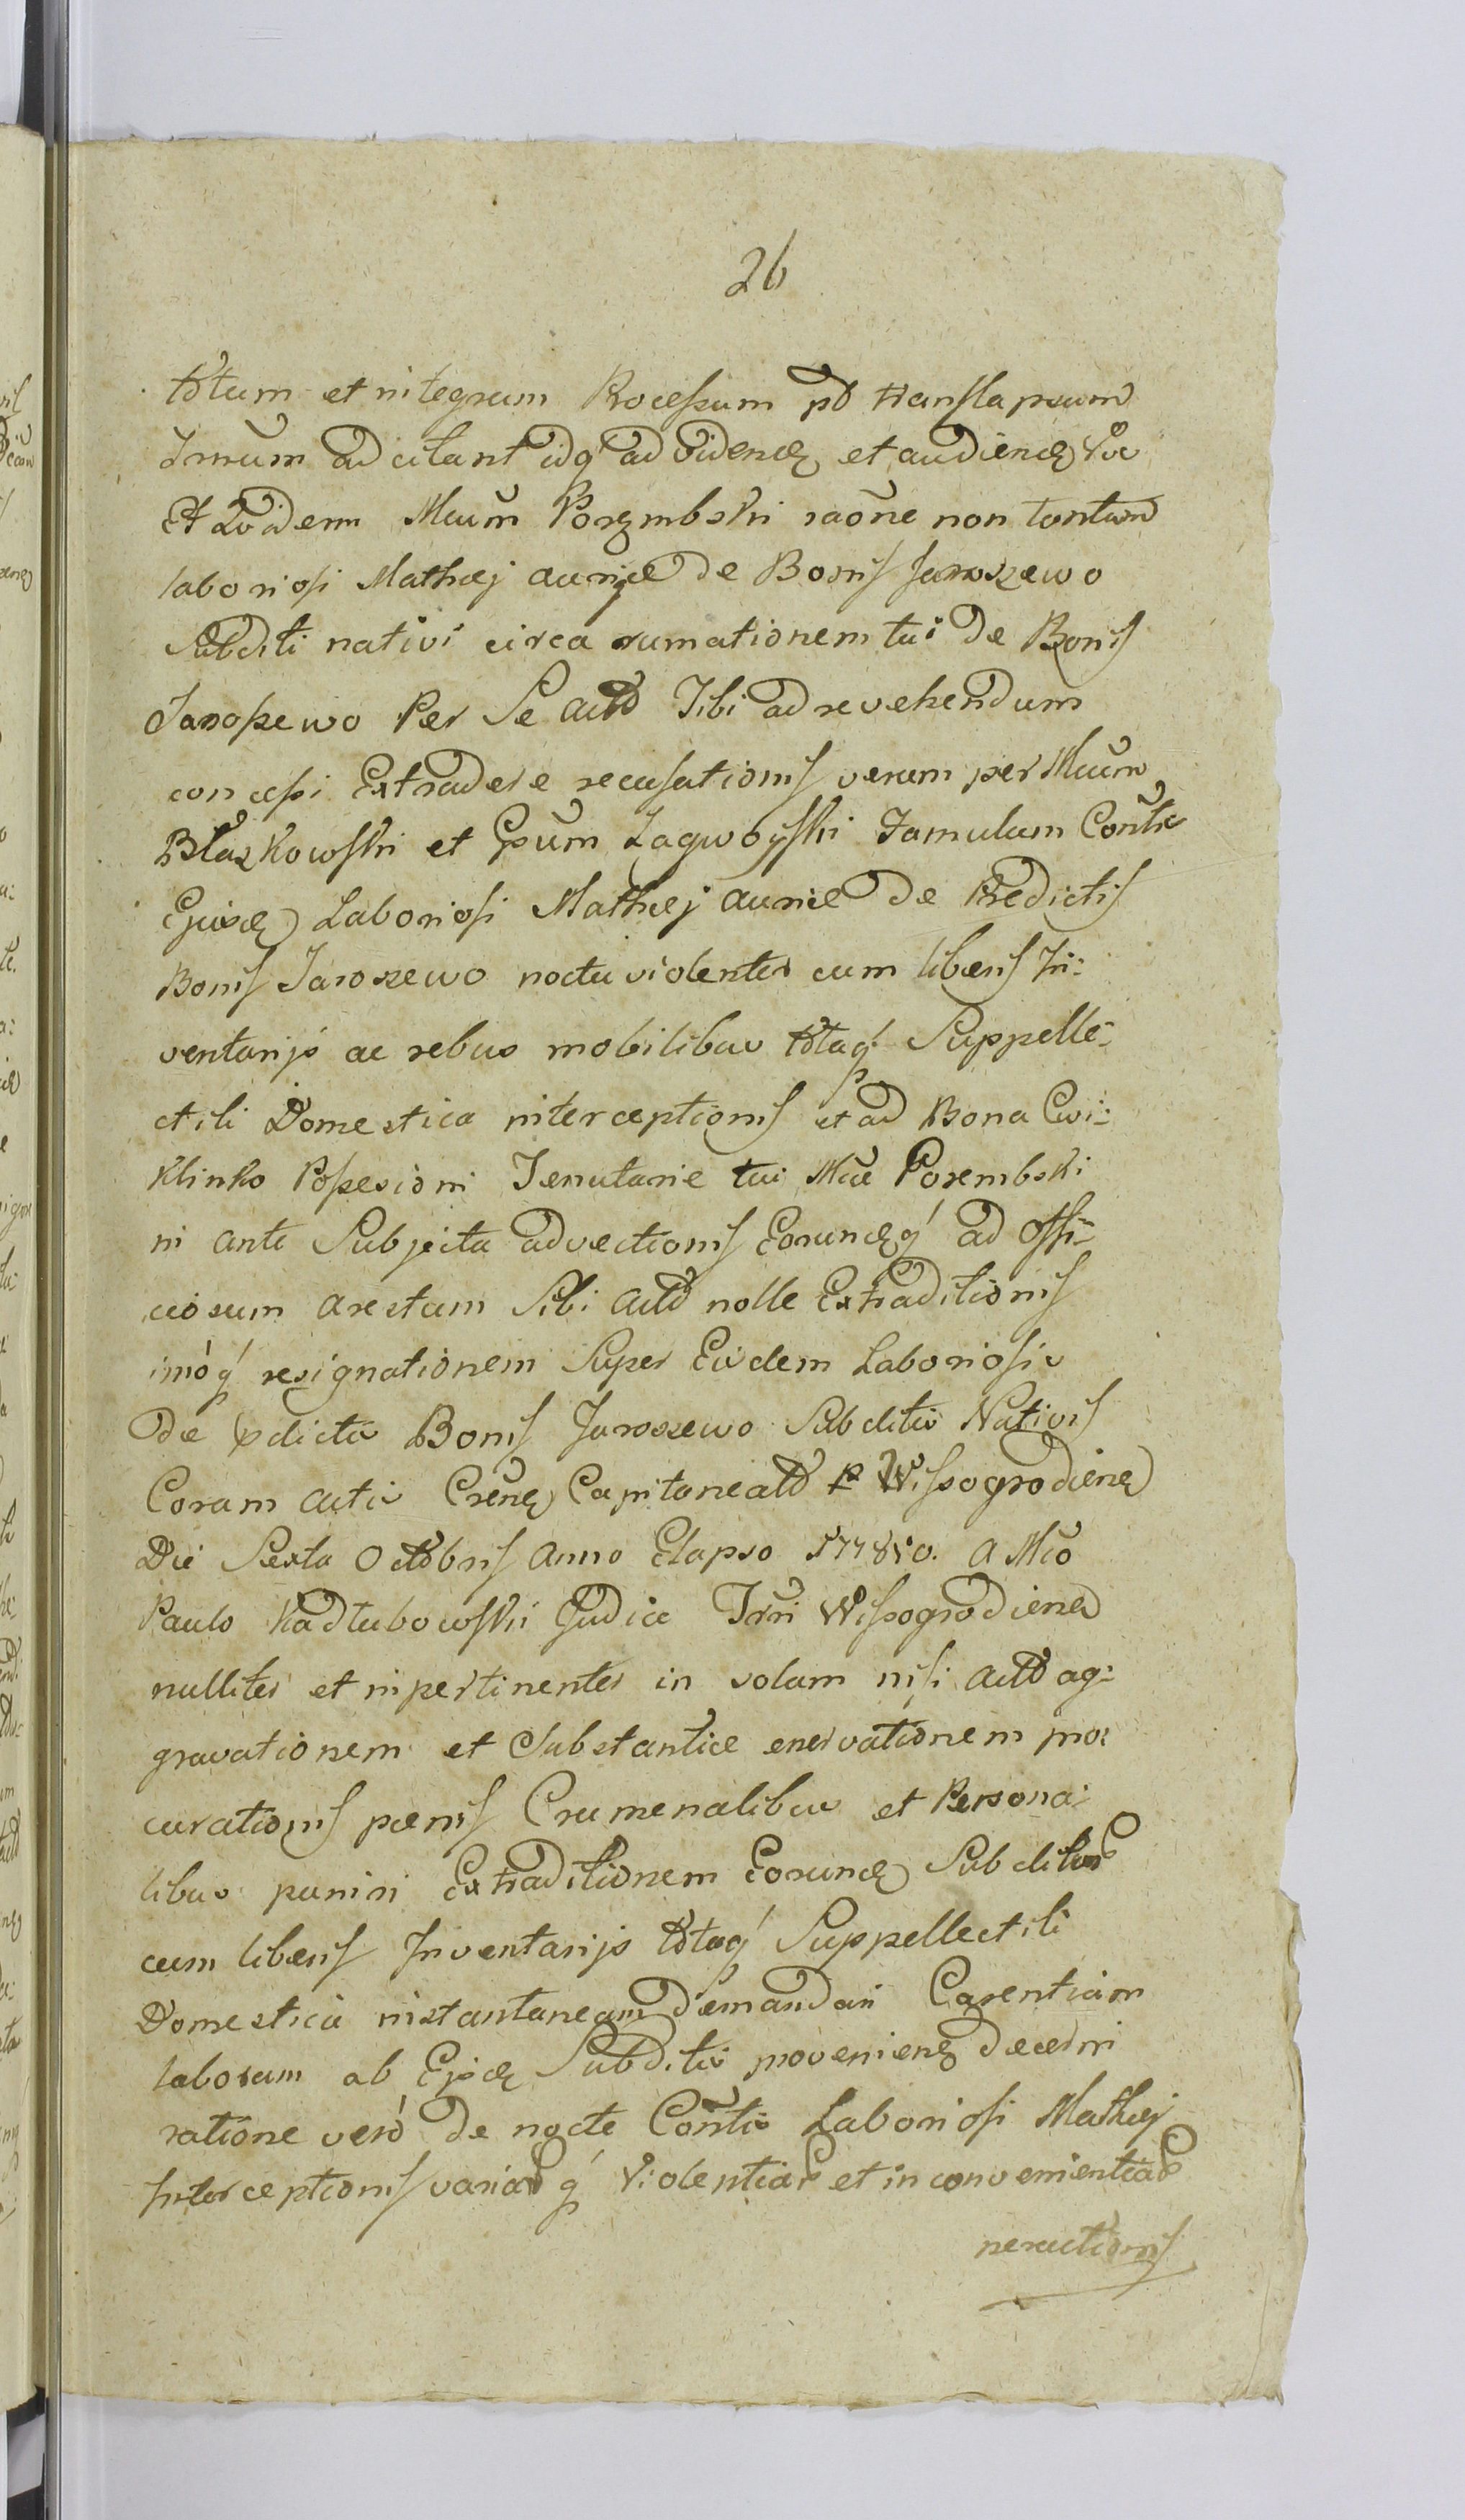 26
totum et integrum Processum pṭ translapsum
Trnum adcitant idq́ ad videnḍ et audienḍ Vr
Et Quidem Mcum Porembski raõne non tantum
laboriosi Mathæj aurigæ de Bonis Jaroszewo
Subditi nativi circa rumationem tui de Bonis
Jaroszewo Per Se Actɤ Tibi ad revehendum
concessi Extradere recusationis verum per Mcum
Błaszkowski et Gsum Zagwoyski Famulum Contis
Ejusdɤ Laboriosi Mathæj aurigæ de Prædictis
Bonis Jaroszewo noctu violenter cum liberis In-
ventarijs ac rebus mobilibus totaq́ Suppelle-
ctili Domestica interceptionis et ad Bona Cwi-
klinko Possesioni Tenutariæ tui Mce Porembski
in ante Subjecta advectionis Eorundɤq́ ad offi-
ciosum arestum Sibi Actɤ nolle Extraditionis
imóq́ resignationem Super Eisdem Laboriosis
de pdictis Bonis Jaroszewo Subditis Nativis
Coram Actis Crẽnɤ Capitanealɤ Wissogrodienɤ
Die Sexta Octobris Anno Elapso 177850. a Mco
Paulo Kadłubowski Judice Trri Wissogrodienɤ
nulliter et inpertinenter in solam nisi Actɤ ag-
gravationem et Substantiæ enervationem pro-
curationis pænis Crumenalibus et Persona-
libus puniri Extraditionem Eorundɤ Subditorɤ
cum liberis Inventarijs totaq́ Suppellectili
Domestica instantaneam demandari Carentiam
laborum ab Eisdɤ Subditis provenienɤ decerni
ratione veró de nocte Contis Laboriosi Mathæj
Interceptionis variarɤ q́ Violentiarɤ et inconvenientiarɤ
peractionis